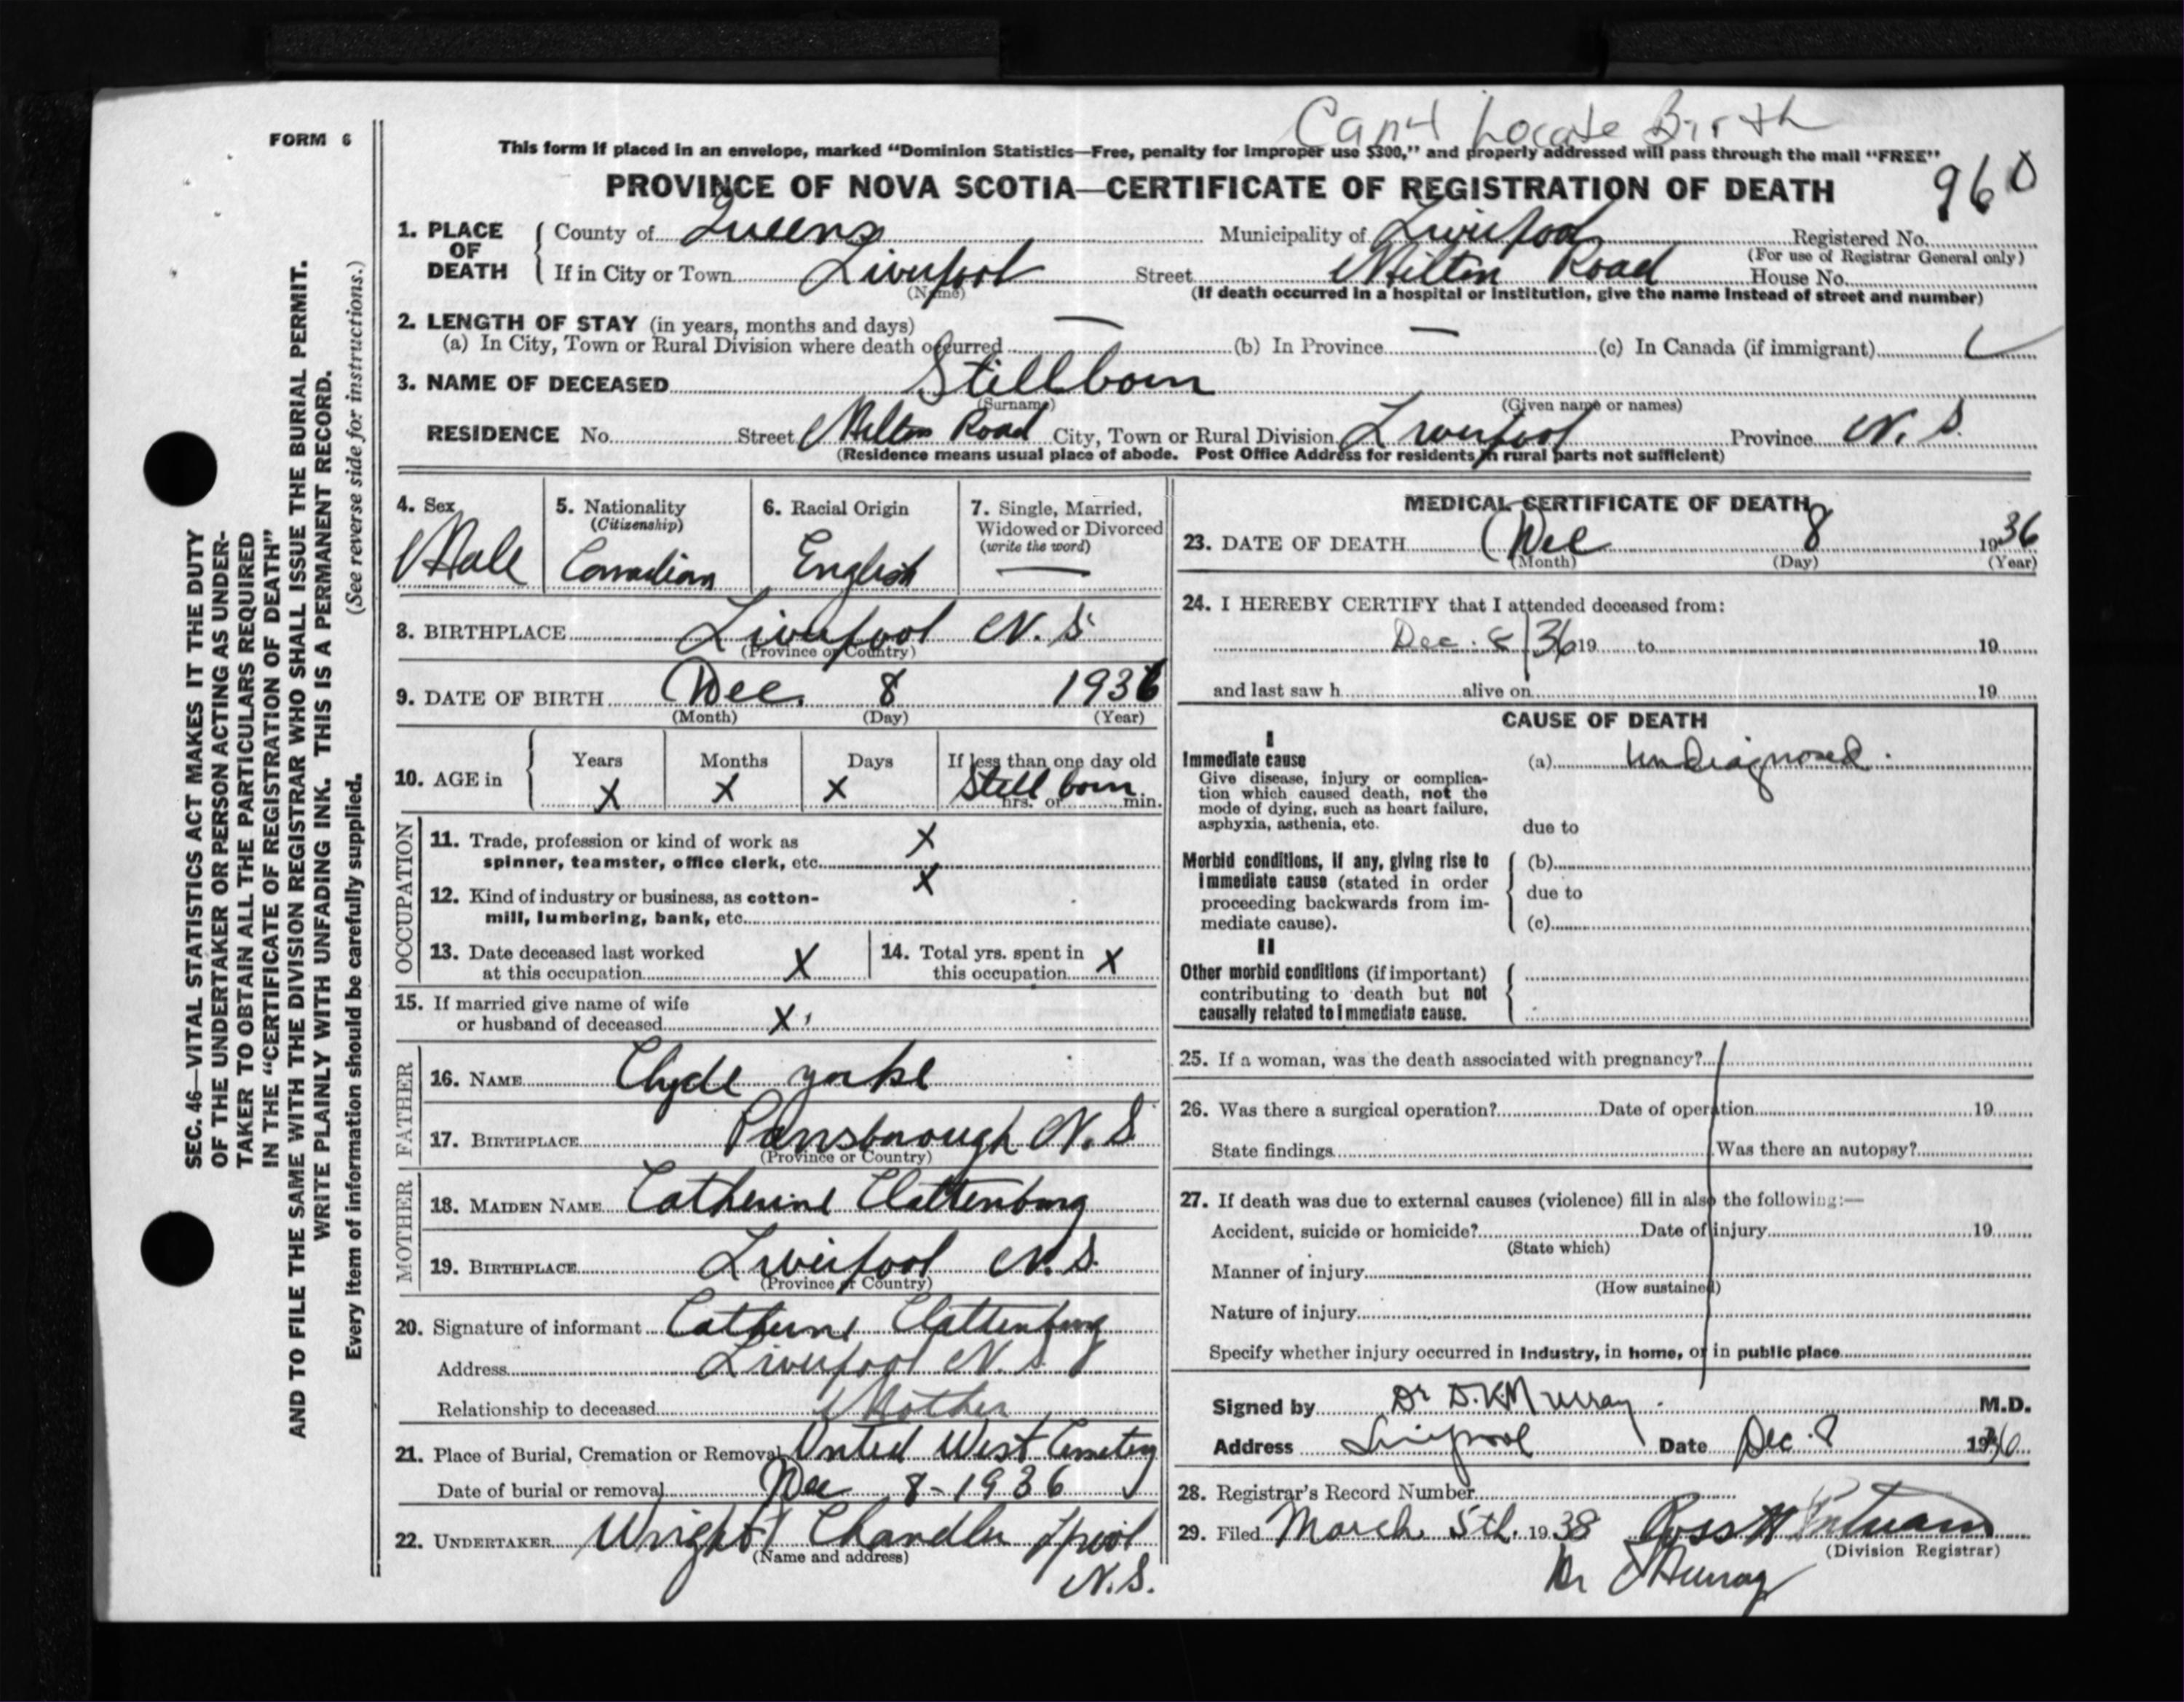 Can't Locate Birth
FORM 6
This form if placed in an envelope, marked "Dominion Statistics—Free, penalty for improper use $300," and properly addressed will pass through the mail "FREE"
PROVINCE OF NOVA SCOTIA—CERTIFICATE OF REGISTRATION OF DEATH
960
1. PLACE OF DEATH
County of Queens Municipality of Liverpool Registered No.
(For use of Registrar General only)
If in City or Town Liverpool Street Milton Road House No.
(Name) (If death occurred in a hospital or institution, give the name instead of street and number)
2. LENGTH OF STAY (in years, months and days)
(a) In City, Town or Rural Division where death occurred — (b) In Province — (c) In Canada (if immigrant)
3. NAME OF DECEASED Stillborn
(Surname) (Given name or names)
RESIDENCE No. Street Milton Road City, Town or Rural Division Liverpool Province N. S.
(Residence means usual place of abode. Post Office Address for residents in rural parts not sufficient)
4. Sex
Male
5. Nationality
(Citizenship)
Canadian
6. Racial Origin
English
7. Single, Married,
Widowed or Divorced
(write the word)
—
8. BIRTHPLACE Liverpool N. S.
(Province or Country)
9. DATE OF BIRTH Dec. 8 1936
(Month) (Day) (Year)
10. AGE in
Years Months Days If less than one day old
X X X Still born
hrs. or min.
OCCUPATION
11. Trade, profession or kind of work as X
spinner, teamster, office clerk, etc.
12. Kind of industry or business, as cotton- X
mill, lumbering, bank, etc.
13. Date deceased last worked
at this occupation X
14. Total yrs. spent in
this occupation X
15. If married give name of wife
or husband of deceased X
FATHER
16. NAME Clyde Yorke
17. BIRTHPLACE Parrsborough N. S.
(Province or Country)
MOTHER
18. MAIDEN NAME Catherine Clattenburg
19. BIRTHPLACE Liverpool N. S.
(Province or Country)
20. Signature of informant Catherine Clattenburg
Address Liverpool N. S.
Relationship to deceased Mother
21. Place of Burial, Cremation or Removal United West Cemetery
Date of burial or removal Dec 8-1936
22. UNDERTAKER Wright Chandler Lpool
(Name and address)
N.S.
MEDICAL CERTIFICATE OF DEATH
23. DATE OF DEATH Dec 8 1936
(Month) (Day) (Year)
24. I HEREBY CERTIFY that I attended deceased from:
Dec. 8/36 19 to 19
and last saw h alive on 19
CAUSE OF DEATH
I
Immediate cause
Give disease, injury or complica-
tion which caused death, not the
mode of dying, such as heart failure,
asphyxia, asthenia, etc.
(a) Undiagnosed.
due to
Morbid conditions, if any, giving rise to
immediate cause (stated in order
proceeding backwards from im-
mediate cause).
(b)
due to
(c)
II
Other morbid conditions (if important)
contributing to death but not
causally related to immediate cause.
25. If a woman, was the death associated with pregnancy?
26. Was there a surgical operation? Date of operation 19
State findings Was there an autopsy?
27. If death was due to external causes (violence) fill in also the following:—
Accident, suicide or homicide? Date of injury 19
(State which)
Manner of injury
(How sustained)
Nature of injury
Specify whether injury occurred in industry, in home, or in public place
Signed by Dr D.K. Murray M.D.
Address Liverpool Date Dec. 8 1936
28. Registrar's Record Number
29. Filed March 5th. 1938 Ross Putnam
(Division Registrar)
Dr Murray
SEC. 46—VITAL STATISTICS ACT MAKES IT THE DUTY
OF THE UNDERTAKER OR PERSON ACTING AS UNDER-
TAKER TO OBTAIN ALL THE PARTICULARS REQUIRED
IN THE "CERTIFICATE OF REGISTRATION OF DEATH"
AND TO FILE THE SAME WITH THE DIVISION REGISTRAR WHO SHALL ISSUE THE BURIAL PERMIT.
WRITE PLAINLY WITH UNFADING INK. THIS IS A PERMANENT RECORD.
Every item of information should be carefully supplied. (See reverse side for instructions.)